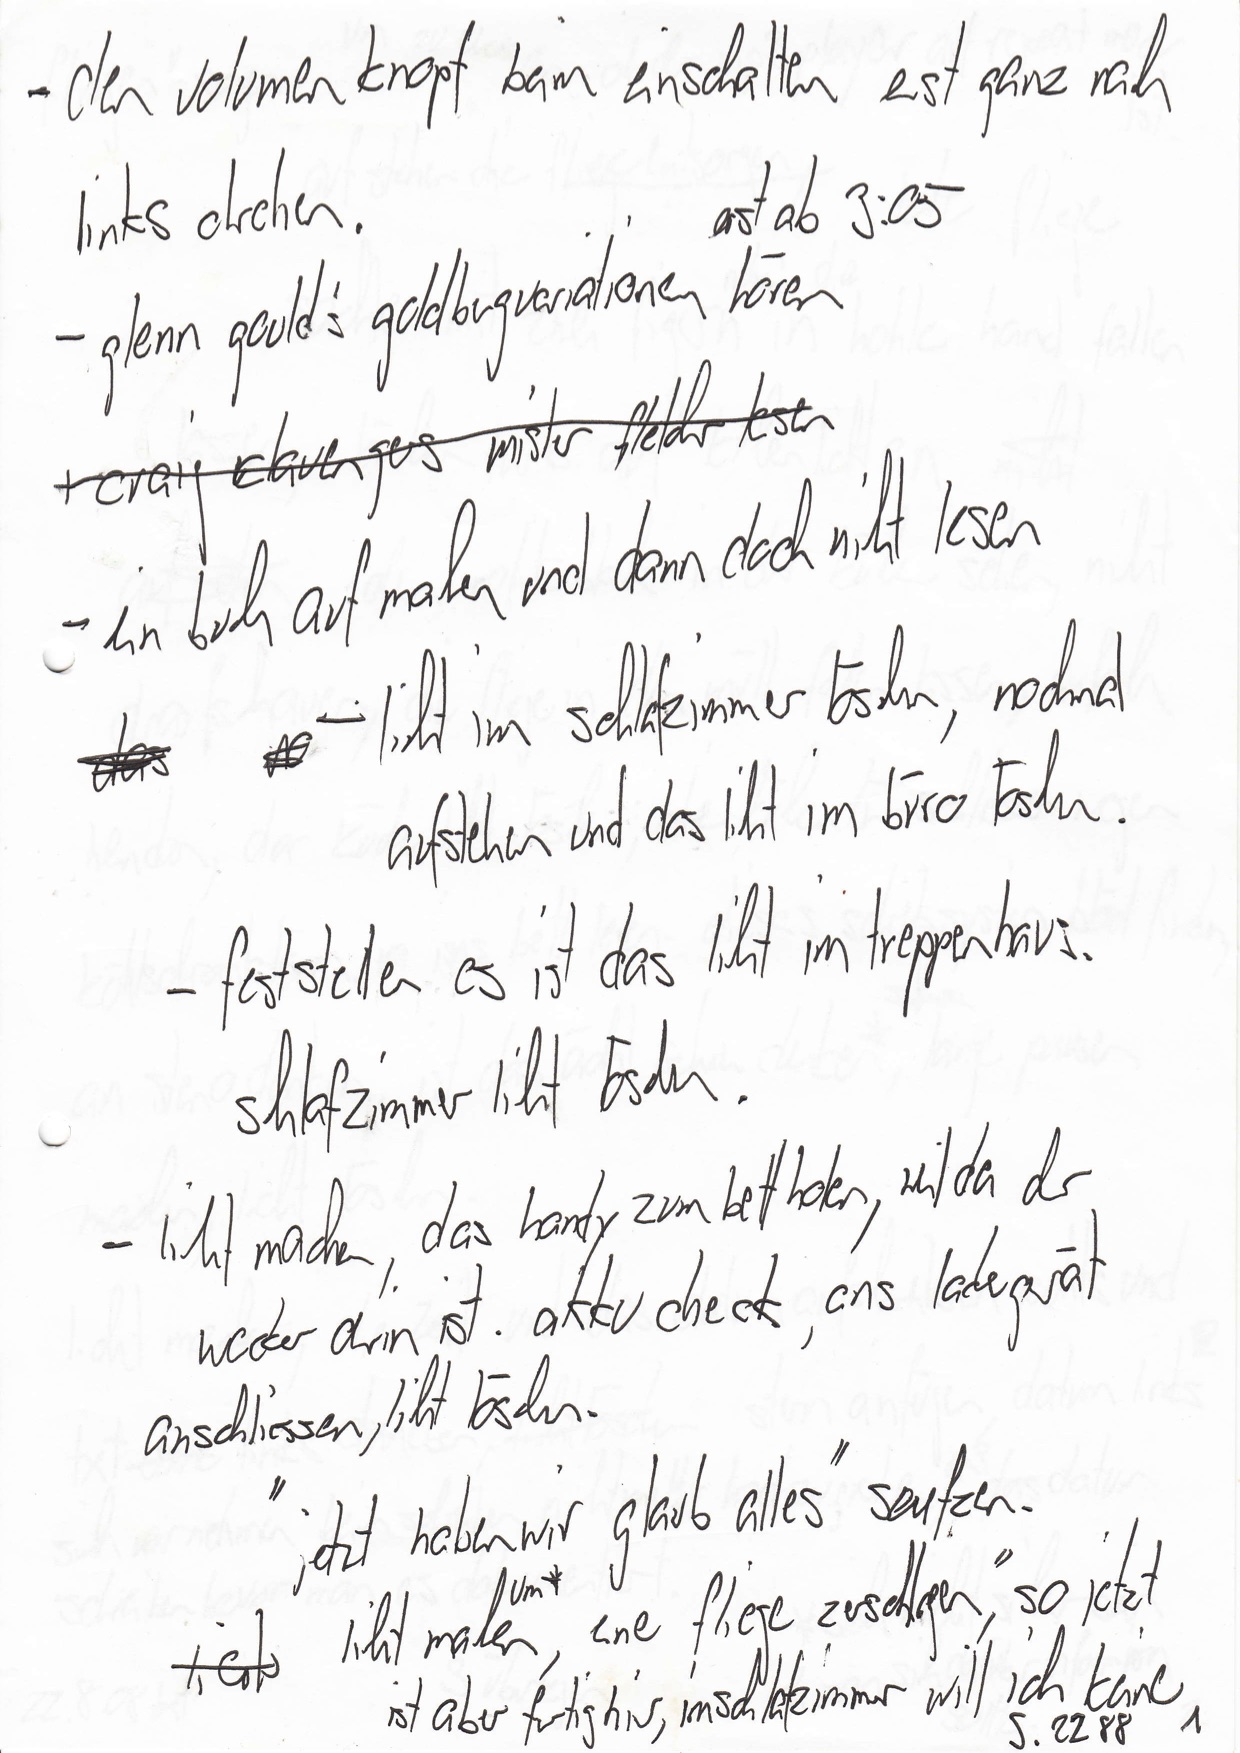 - den volumenknopf beim einschalten erst ganz nach
links drehen.
erst ab 3:05
- glenn gould's goldbergvariationen hören
- craig clevengers mister fletcher lesen
- ein buch auf machen und dann doch nicht lesen
das - licht im schlafzimmer löschen, nochmal
aufstehen und das licht im büro löschen.
- feststellen es ist das licht im treppenhaus.
schlafzimmer licht löschen.
- licht machen, das handy zum bett holen, weil da der
wecker drin ist. akku check, ans ladegerät
anschliessen, licht löschen.
"jetzt haben wir glaub alles" seufzen.
um*
licht machen, eine fliege zerschlagen, "so jetzt
ist aber fertig hier, im schlafzimmer will ich keine
S. 22 88 1